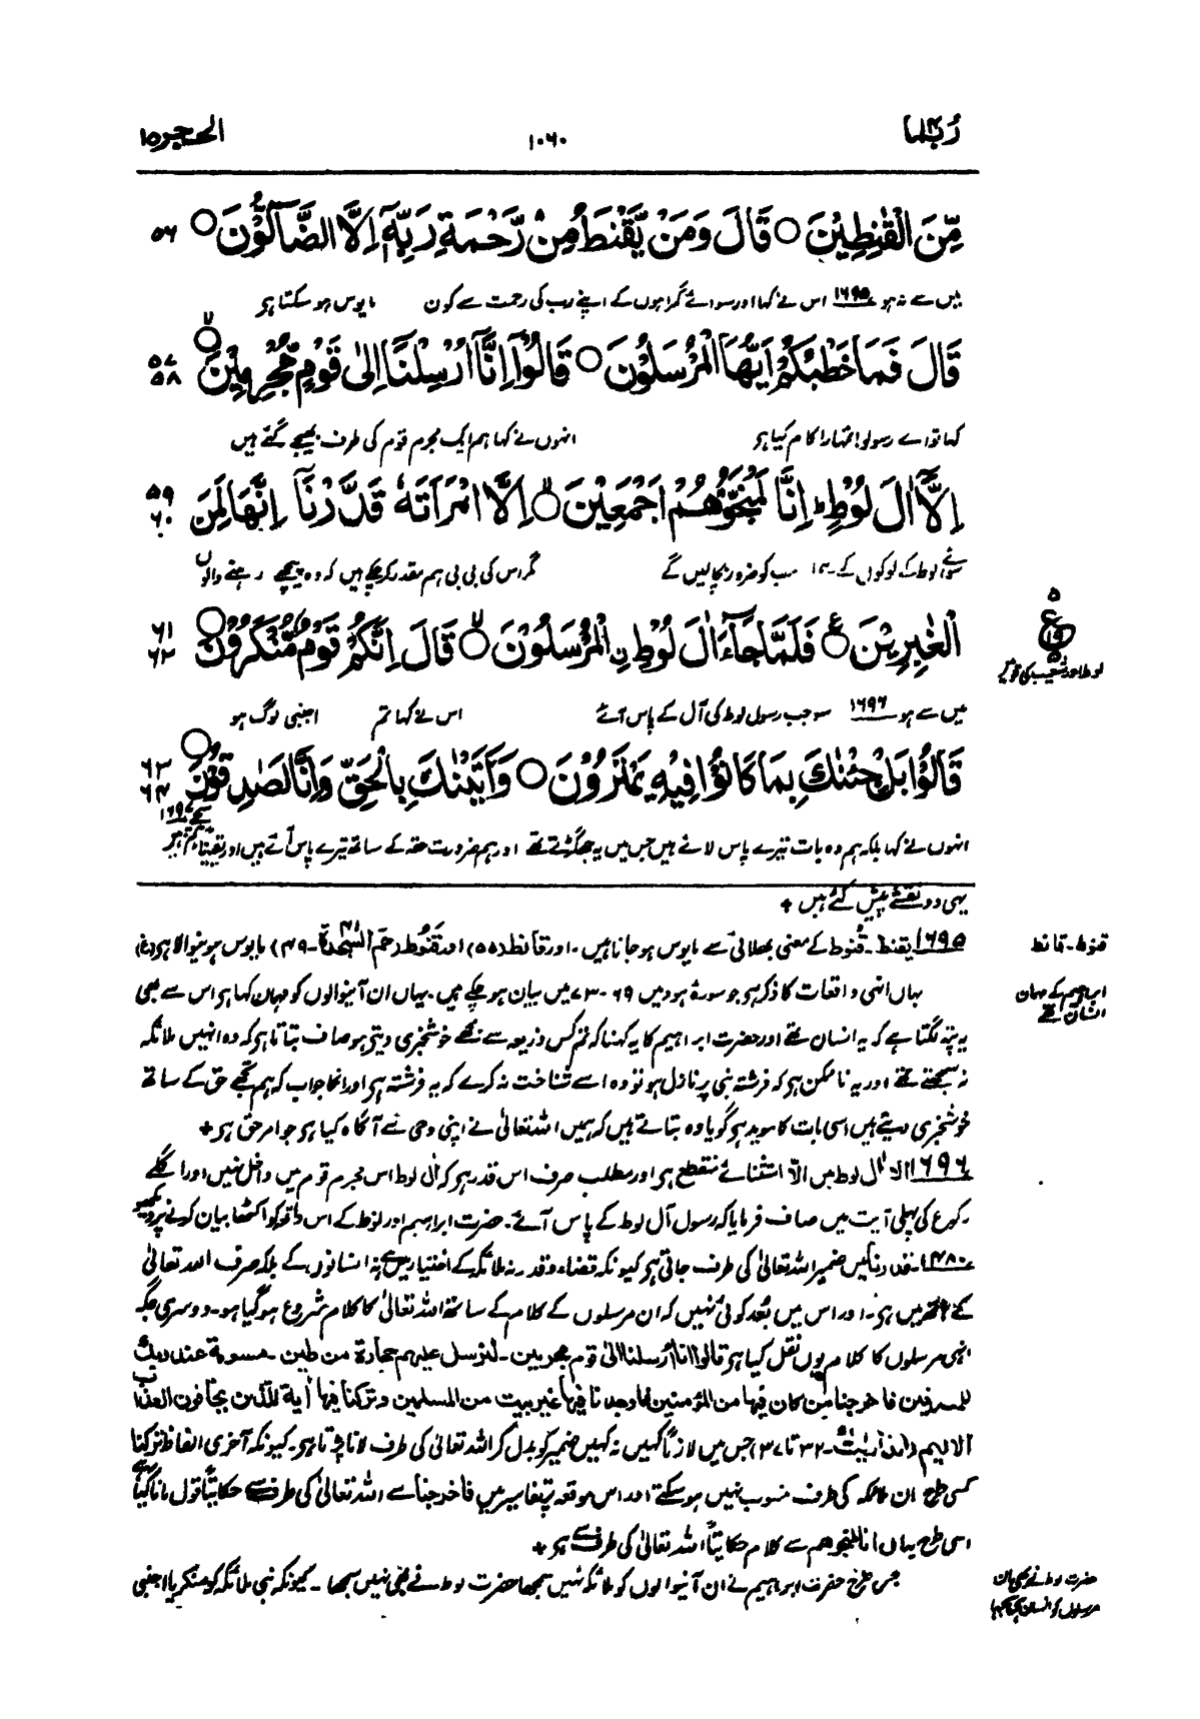 رُبَمَا ۱۰۶۰ الحجر ۱۵
مِّنَ الْقٰنِطِيْنَ ○ قَالَ وَمَنْ يَّقْنَطُ مِنْ رَّحْمَةِ رَبِّهٖٓ اِلَّا الضَّآلُّوْنَ ○ ۵۶
میں سے نہ ہو ۱۶۹۵ اس نے کہا اور سوائے گمراہوں کے اپنے رب کی رحمت سے کون مایوس ہو سکتا ہو
قَالَ فَمَا خَطْبُكُمْ اَيُّهَا الْمُرْسَلُوْنَ ○ قَالُوْٓا اِنَّآ اُرْسِلْنَآ اِلٰى قَوْمٍ مُّجْرِمِيْنَ ○ ۵۷ ۵۸
کہا تو اے رسولو! تمہارا کام کیا ہو انہوں نے کہا ہم ایک مجرم قوم کی طرف بھیجے گئے ہیں
اِلَّآ اٰلَ لُوْطٍ ؕ اِنَّا لَمُنَجُّوْهُمْ اَجْمَعِيْنَ ○ اِلَّا امْرَاَتَهٗ قَدَّرْنَآ اِنَّهَا لَمِنَ ۵۹ ۶۰
سوائے لوط کے لوگوں کے ہم ان سب کو ضرور بچا لیں گے مگر اس کی بی بی ہم مقدر کر چکے ہیں کہ وہ پیچھے رہنے والوں
الْغٰبِرِيْنَ ○ فَلَمَّا جَآءَ اٰلَ لُوْطِ ِۨ الْمُرْسَلُوْنَ ○ قَالَ اِنَّكُمْ قَوْمٌ مُّنْكَرُوْنَ ○ ۶۱ ۶۲
لوط اور شعیب کی قومیں
میں سے ہو ۱۶۹۶ سو جب رسول لوط کی آل کے پاس آئے اس نے کہا تم اجنبی لوگ ہو
قَالُوْا بَلْ جِئْنٰكَ بِمَا كَانُوْا فِيْهِ يَمْتَرُوْنَ ○ وَاَتَيْنٰكَ بِالْحَقِّ وَاِنَّا لَصٰدِقُوْنَ ○ ۶۳ ۶۴
انہوں نے کہا بلکہ ہم وہ بات تیرے پاس لائے ہیں جس میں یہ جھگڑتے تھے اور ہم ضرورت حقہ کے ساتھ تیرے پاس آئے ہیں اور یقیناً ہم سچے ۱۶۹۷ ہیں
یہی دو نقشے پیش کئے ہیں +
۱۶۹۵ یقنط۔ قُنوط کے معنی بھلائی سے مایوس ہو جانا ہیں۔ اور قانط (۵۵) اور قَنُوط (حٰمٓ السجدۃ۔ ۴۹) مایوس ہونیوالا ہی (غ)
قنوط۔ قانط
یہاں انہی واقعات کا ذکر ہو جو سورۂ ہود میں ۶۹۔۷۳ میں بیان ہو چکے ہیں۔ یہاں ان آنیوالوں کو مہمان کہا ہو اس سے بھی
ابراہیم کے مہمان انسان تھے
یہ پتہ لگتا ہے کہ یہ انسان تھے اور حضرت ابراہیم کا یہ کہنا کہ تم کس ذریعہ سے مجھے خوشخبری دیتے ہو صاف بتاتا ہو کہ وہ انہیں ملائکہ
نہ سمجھتے تھے اور یہ ناممکن ہو کہ فرشتہ نبی پر نازل ہو تو وہ اسے شناخت نہ کرے کہ یہ فرشتہ ہو اور انکا جواب کہ ہم تجھے حق کے ساتھ
خوشخبری دیتے ہیں اسی بات کا موید ہو گویا وہ بتاتے ہیں کہ ہمیں اللہ تعالیٰ نے اپنی وحی سے آگاہ کیا ہو جو امر حق ہو +
۱۶۹۶ الا اٰل لوط میں الّا استثنائے منقطع ہو اور مطلب صرف اس قدر ہو کہ اٰل لوط اس مجرم قوم میں داخل نہیں اور اگلے
رکوع کی پہلی آیت میں صاف فرمایا کہ رسول آل لوط کے پاس آئے۔ حضرت ابراہیم اور لوط کے اس واقعہ کو اکٹھا بیان کرنے پر دیکھیو
۱۴۸۰۔ قدرنا میں ضمیر اللہ تعالیٰ کی طرف جاتی ہو کیونکہ قضاء و قدر نہ ملائکہ کے اختیار میں ہے نہ انسانوں کے بلکہ صرف اللہ تعالیٰ
کے ہاتھ میں ہو۔ اور اس میں بُعد کوئی نہیں کہ ان مرسلوں کے کلام کے ساتھ اللہ تعالیٰ کا کلام شروع ہو گیا ہو۔ دوسری جگہ
انہی مرسلوں کا کلام یوں نقل کیا ہو قالوا انا ارسلنا الی قوم مجرمین۔ لنرسل علیہم حجارۃ من طین۔ مسومۃ عند ربک
للمسرفین فاخرجنا من کان فیہا من المؤمنین فما وجدنا فیہا غیر بیت من المسلمین وترکنا فیہا اٰیۃ للذین یخافون العذاب
الالیم (الذٰریٰت۔ ۳۲ تا ۳۷) جس میں لازماً کہیں نہ کہیں ضمیر کو بدل کر اللہ تعالیٰ کی طرف لانا پڑتا ہو۔ کیونکہ آخری الفاظ ترکنا
کسی طرح ان ملائکہ کی طرف منسوب نہیں ہو سکتے اور اس موقعہ پر تفاسیر میں فاخرجنا سے اللہ تعالیٰ کی طرف سے حکایتاً قول مانا گیا ہے
اسی طرح یہاں انا لمنجوھم سے کلام حکایتاً اللہ تعالیٰ کی طرف سے ہو +
جس طرح حضرت ابراہیم نے ان آنیوالوں کو ملائکہ نہیں سمجھا حضرت لوط نے بھی نہیں سمجھا۔ کیونکہ نبی ملائکہ کو منکر یا اجنبی
حضرت لوط نے بھی ان
مرسلوں کو انسان ہی سمجھا